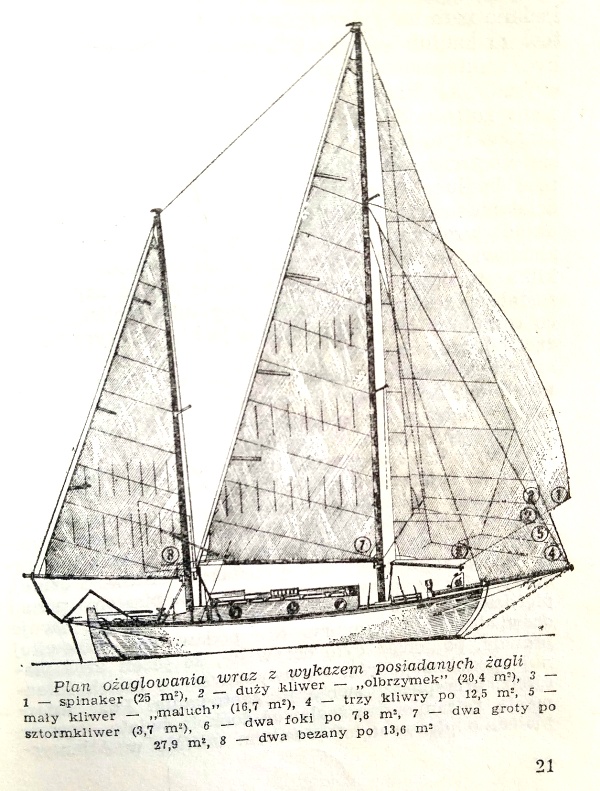 2
1
2
5
8
7
6
4
Plan ożaglowania wraz z wykazem posiadanych żagli
1 — spinaker (25 m²), 2 — duży kliwer — „olbrzymek” (20,4 m²), 3 —
mały kliwer — „maluch” (16,7 m²), 4 — trzy kliwry po 12,5 m², 5 —
sztormkliwer (3,7 m²), 6 — dwa foki po 7,8 m², 7 — dwa groty po
27,9 m², 8 — dwa bezany po 13,6 m²
21